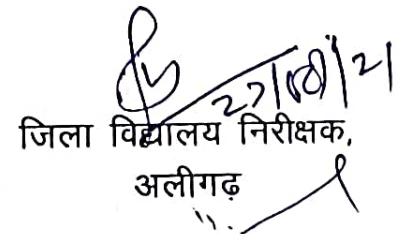 27/08/21
जिला विद्यालय निरीक्षक,
अलीगढ़